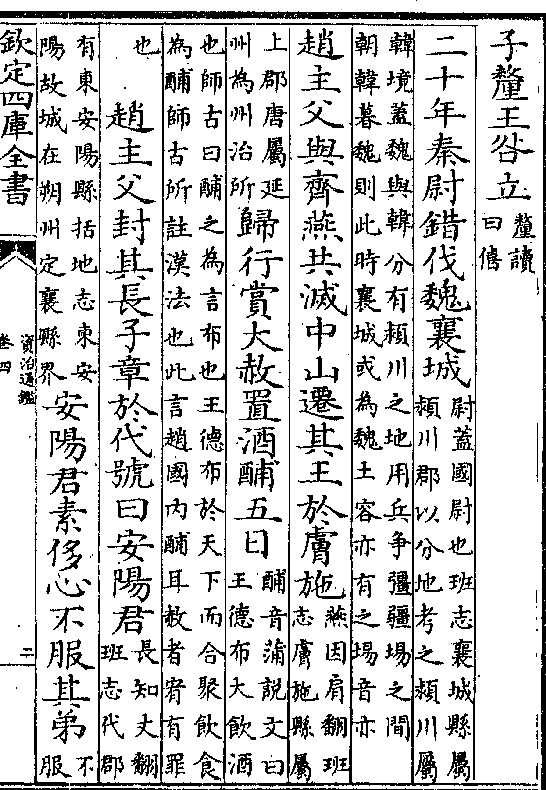 子釐王咎立釐讀曰僖
二十年秦尉錯伐魏襄城尉蓋國尉也班志襄城縣屬潁川郡以分地考之潁川屬
韓境蓋魏與韓分有潁川之地用兵爭彊疆埸之間朝韓暮魏則此時襄城或為魏土容亦有之埸音亦
趙主父與齊燕共滅中山遷其王於膚施燕因肩翻班志膚施縣屬
上郡唐屬延州為州治所歸行賞大赦置酒酺五日酺音蒲說文曰王德布大飲酒
也師古曰酺之為言布也王德布於天下而合聚飲食為酺師古所註漢法也此言趙國內酺耳赦者宥有罪
也趙主父封其長子章於代號曰安陽君長知丈翻班志代郡
有東安陽縣括地志東安陽故城在朔州定襄縣界安陽君素侈心不服其弟不服
欽定四庫全書
資治通鑑
卷四
二